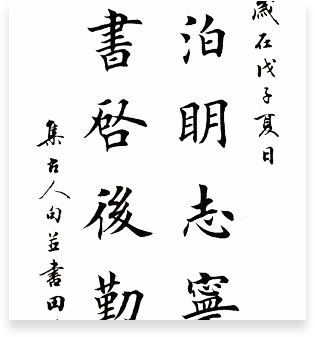 歲在戊子夏日
泊明志寧
書啓後勤
集古人句並書田